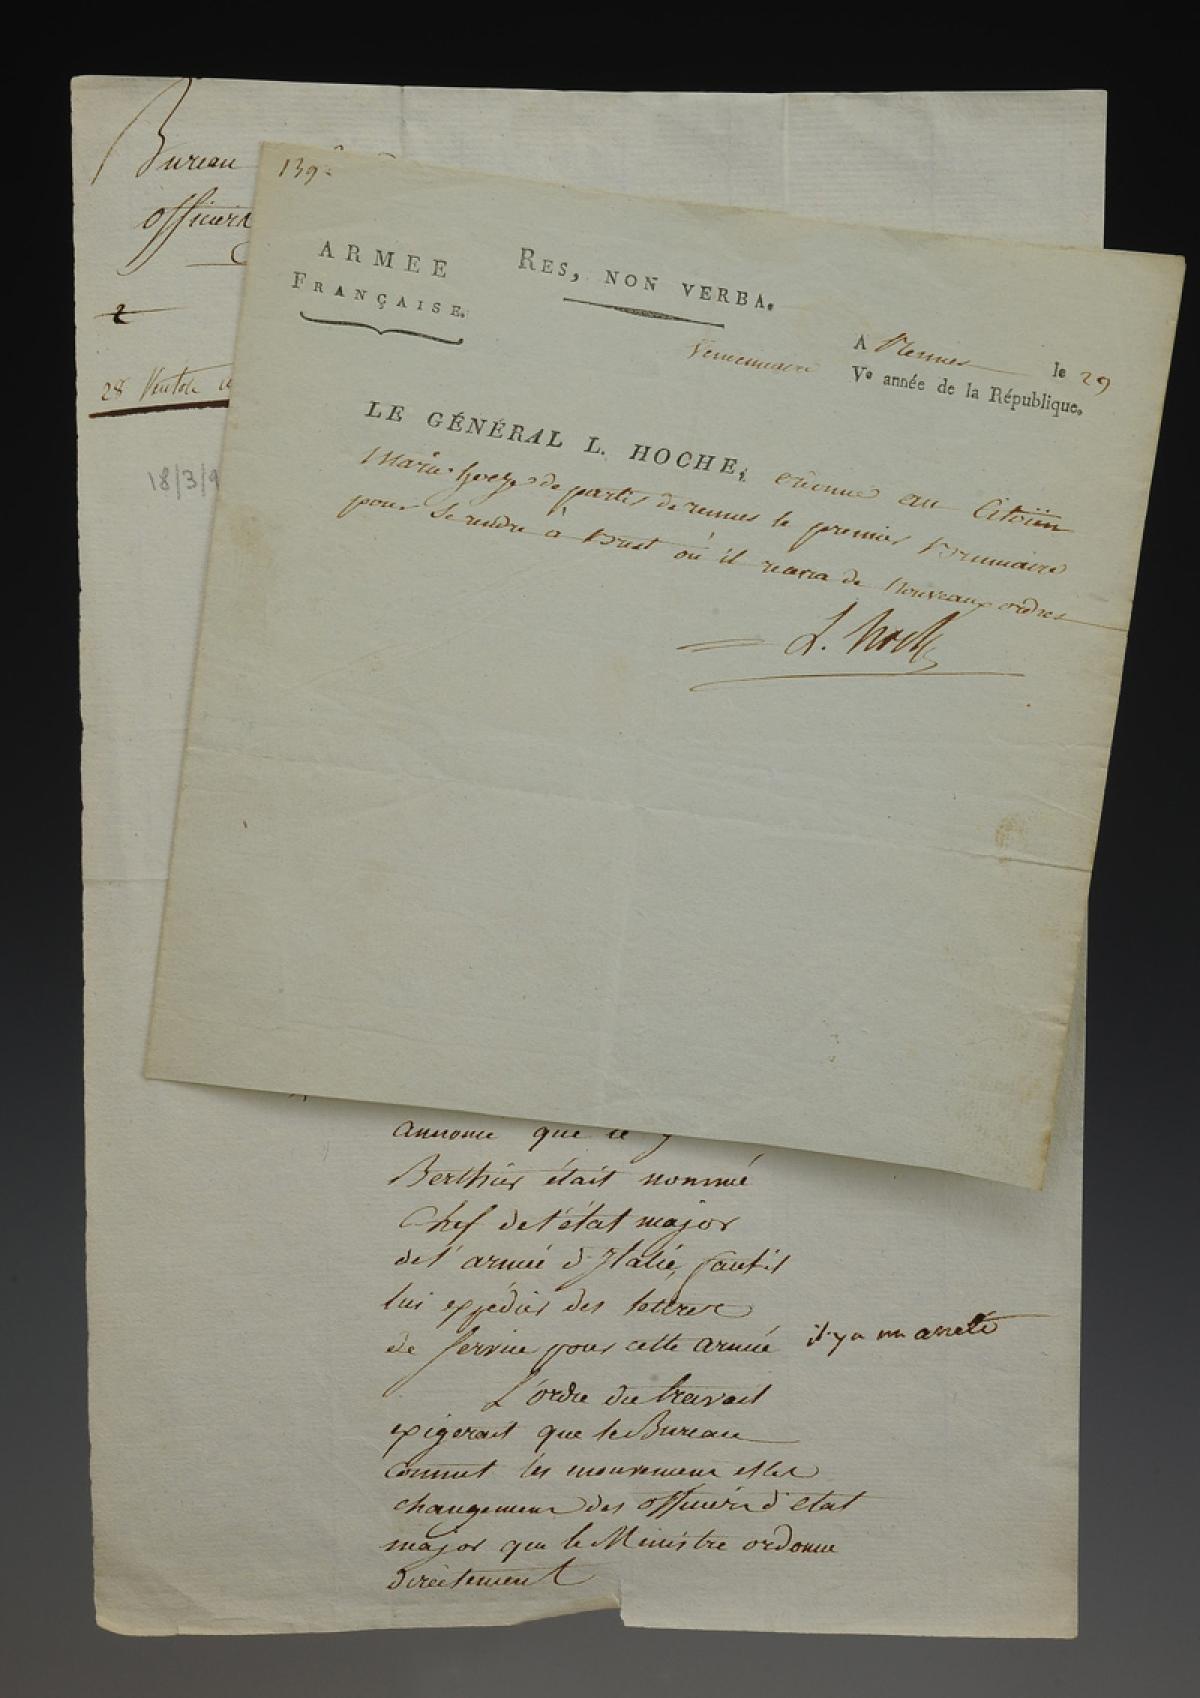 Bureau
officiers
2
28 Ventose
18/3/9
139
ARMEE
FRANÇAISE.
RES, NON VERBA.
A Rennes le 29
Vendemiaire Ve année de la République.
LE GÉNÉRAL L. HOCHE, ordonne au Citoïen
de partir de rennes le premier Brumaire
pour se rendre à Brest où il recevra de Nouveaux ordres
L. Hoche
annonce que le g
Berthier était nommé
Chef de l'état major
de l'armée d'Italie, faut il
lui expédier des lettres
de service pour cette armée il y a un arrêté
L'ordre du travail
exigerait que le Bureau
connut les mouvemens et les
changemens des officiers d'état
major que le Ministre ordonne
directement